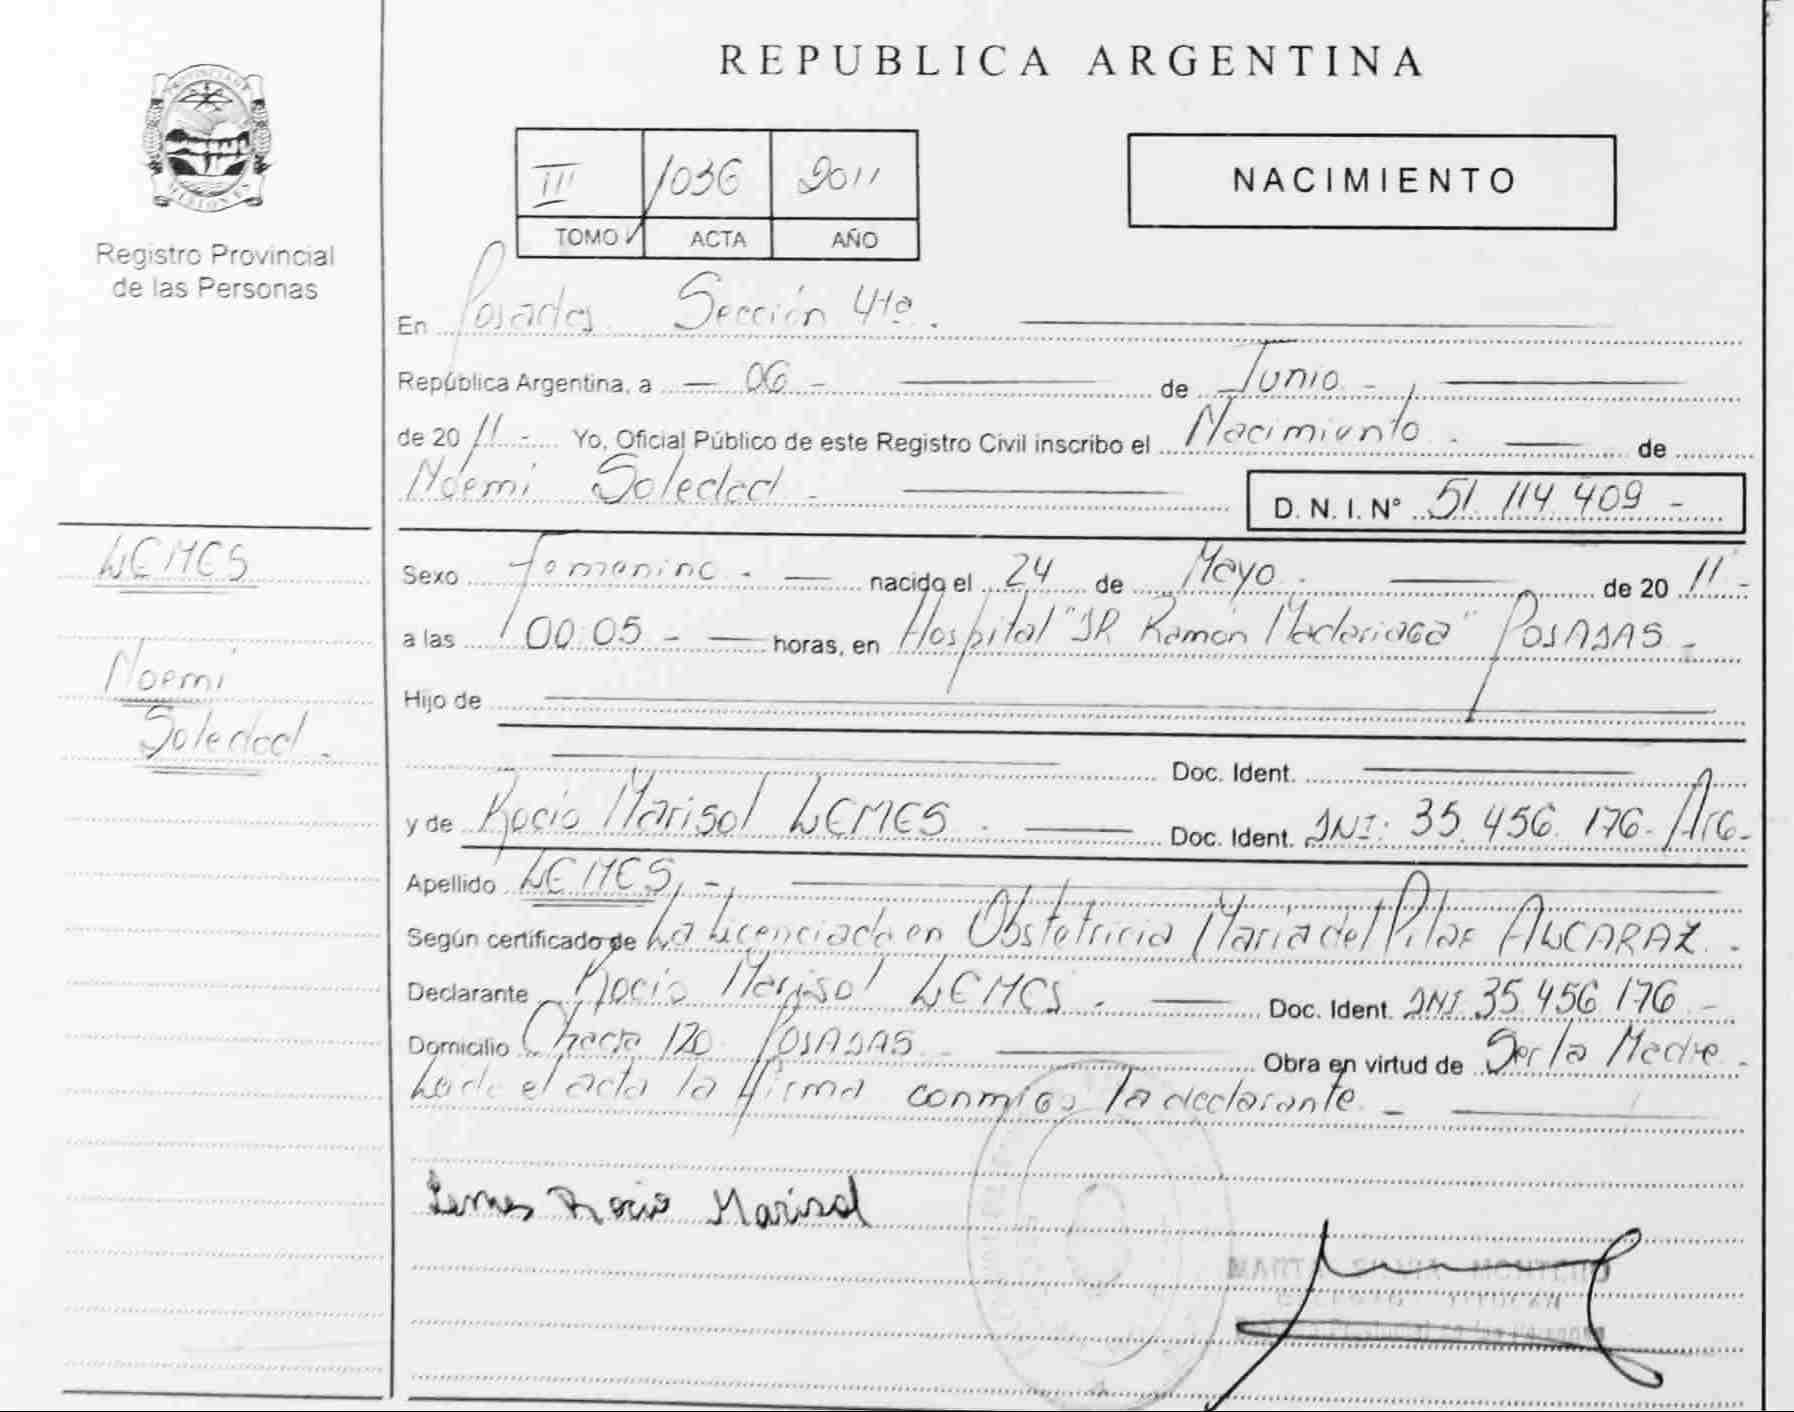 REPUBLICA ARGENTINA
PROVINCIA DE
MISIONES
Registro Provincial
de las Personas
III 1036 2011
TOMO ACTA AÑO
NACIMIENTO
En Posadas Sección 4ta.
República Argentina, a - 06 - de Junio -
de 20 11 - Yo, Oficial Público de este Registro Civil inscribo el Nacimiento. de
Noemi Soledad - D. N. I. N° 51.114.409 -
LEMES
Noemi
Soledad -
Sexo Femenino. - nacido el 24 de Mayo. de 20 11 -
a las 00:05 - horas, en Hospital "DR Ramón Madariaga" POSADAS -
Hijo de
Doc. Ident.
y de Rocio Marisol LEMES. Doc. Ident. DNI: 35.456.176. Arg.
Apellido LEMES, -
Según certificado de La Licenciada en Obstetricia María del Pilar ALCARAZ. -
Declarante Rocio Marisol LEMES. Doc. Ident. DNI 35.456.176 -
Domicilio Chacra 120 POSADAS Obra en virtud de Ser la Madre -
acta la firma conmigo la declarante. -
Lemes Rocio Marisol
MARTA MONTERO
TITULAR